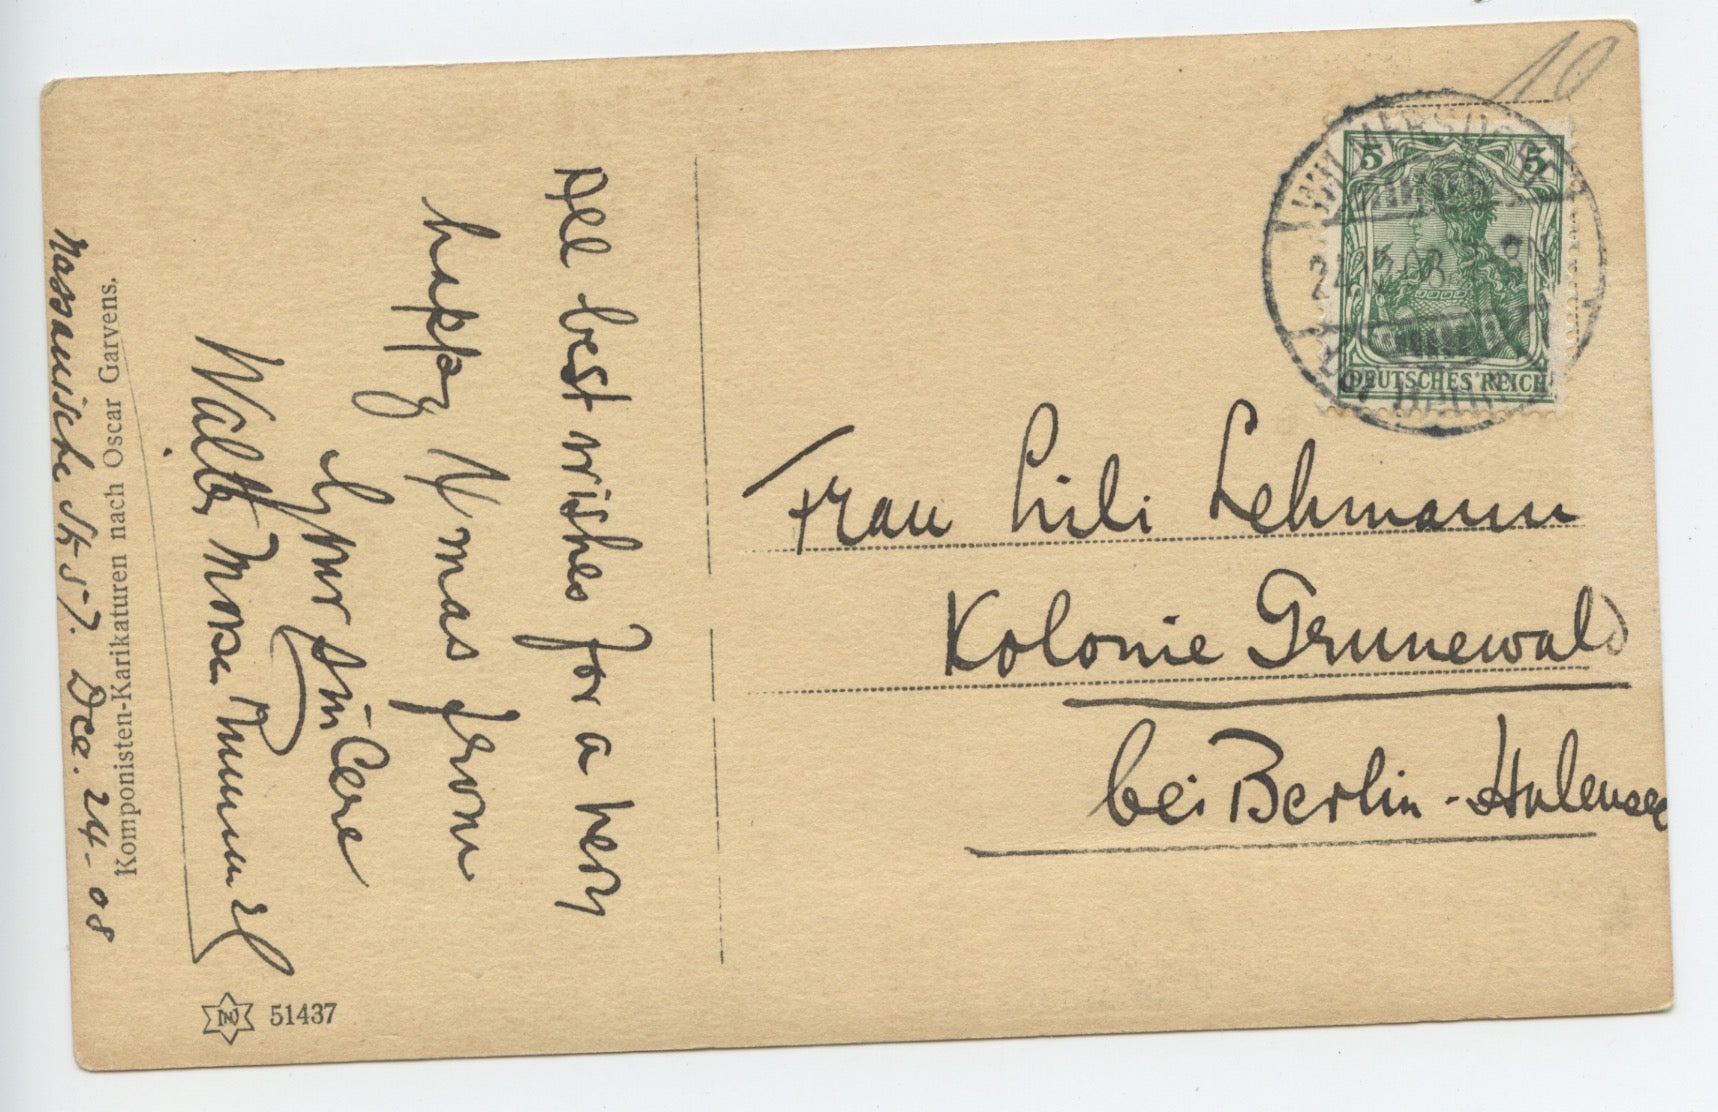 All best wishes for a very
happy Xmas from
Your sincere
Walter Morse Rummel
Nassauische Str 57. Dec. 24-08
Komponisten-Karikaturen nach Oscar Garvens.
51437
10
5 5
DEUTSCHES REICH
WILMERSDORF
24.12.08
Frau Lili Lehmann
Kolonie Grunewald
bei Berlin-Halensee